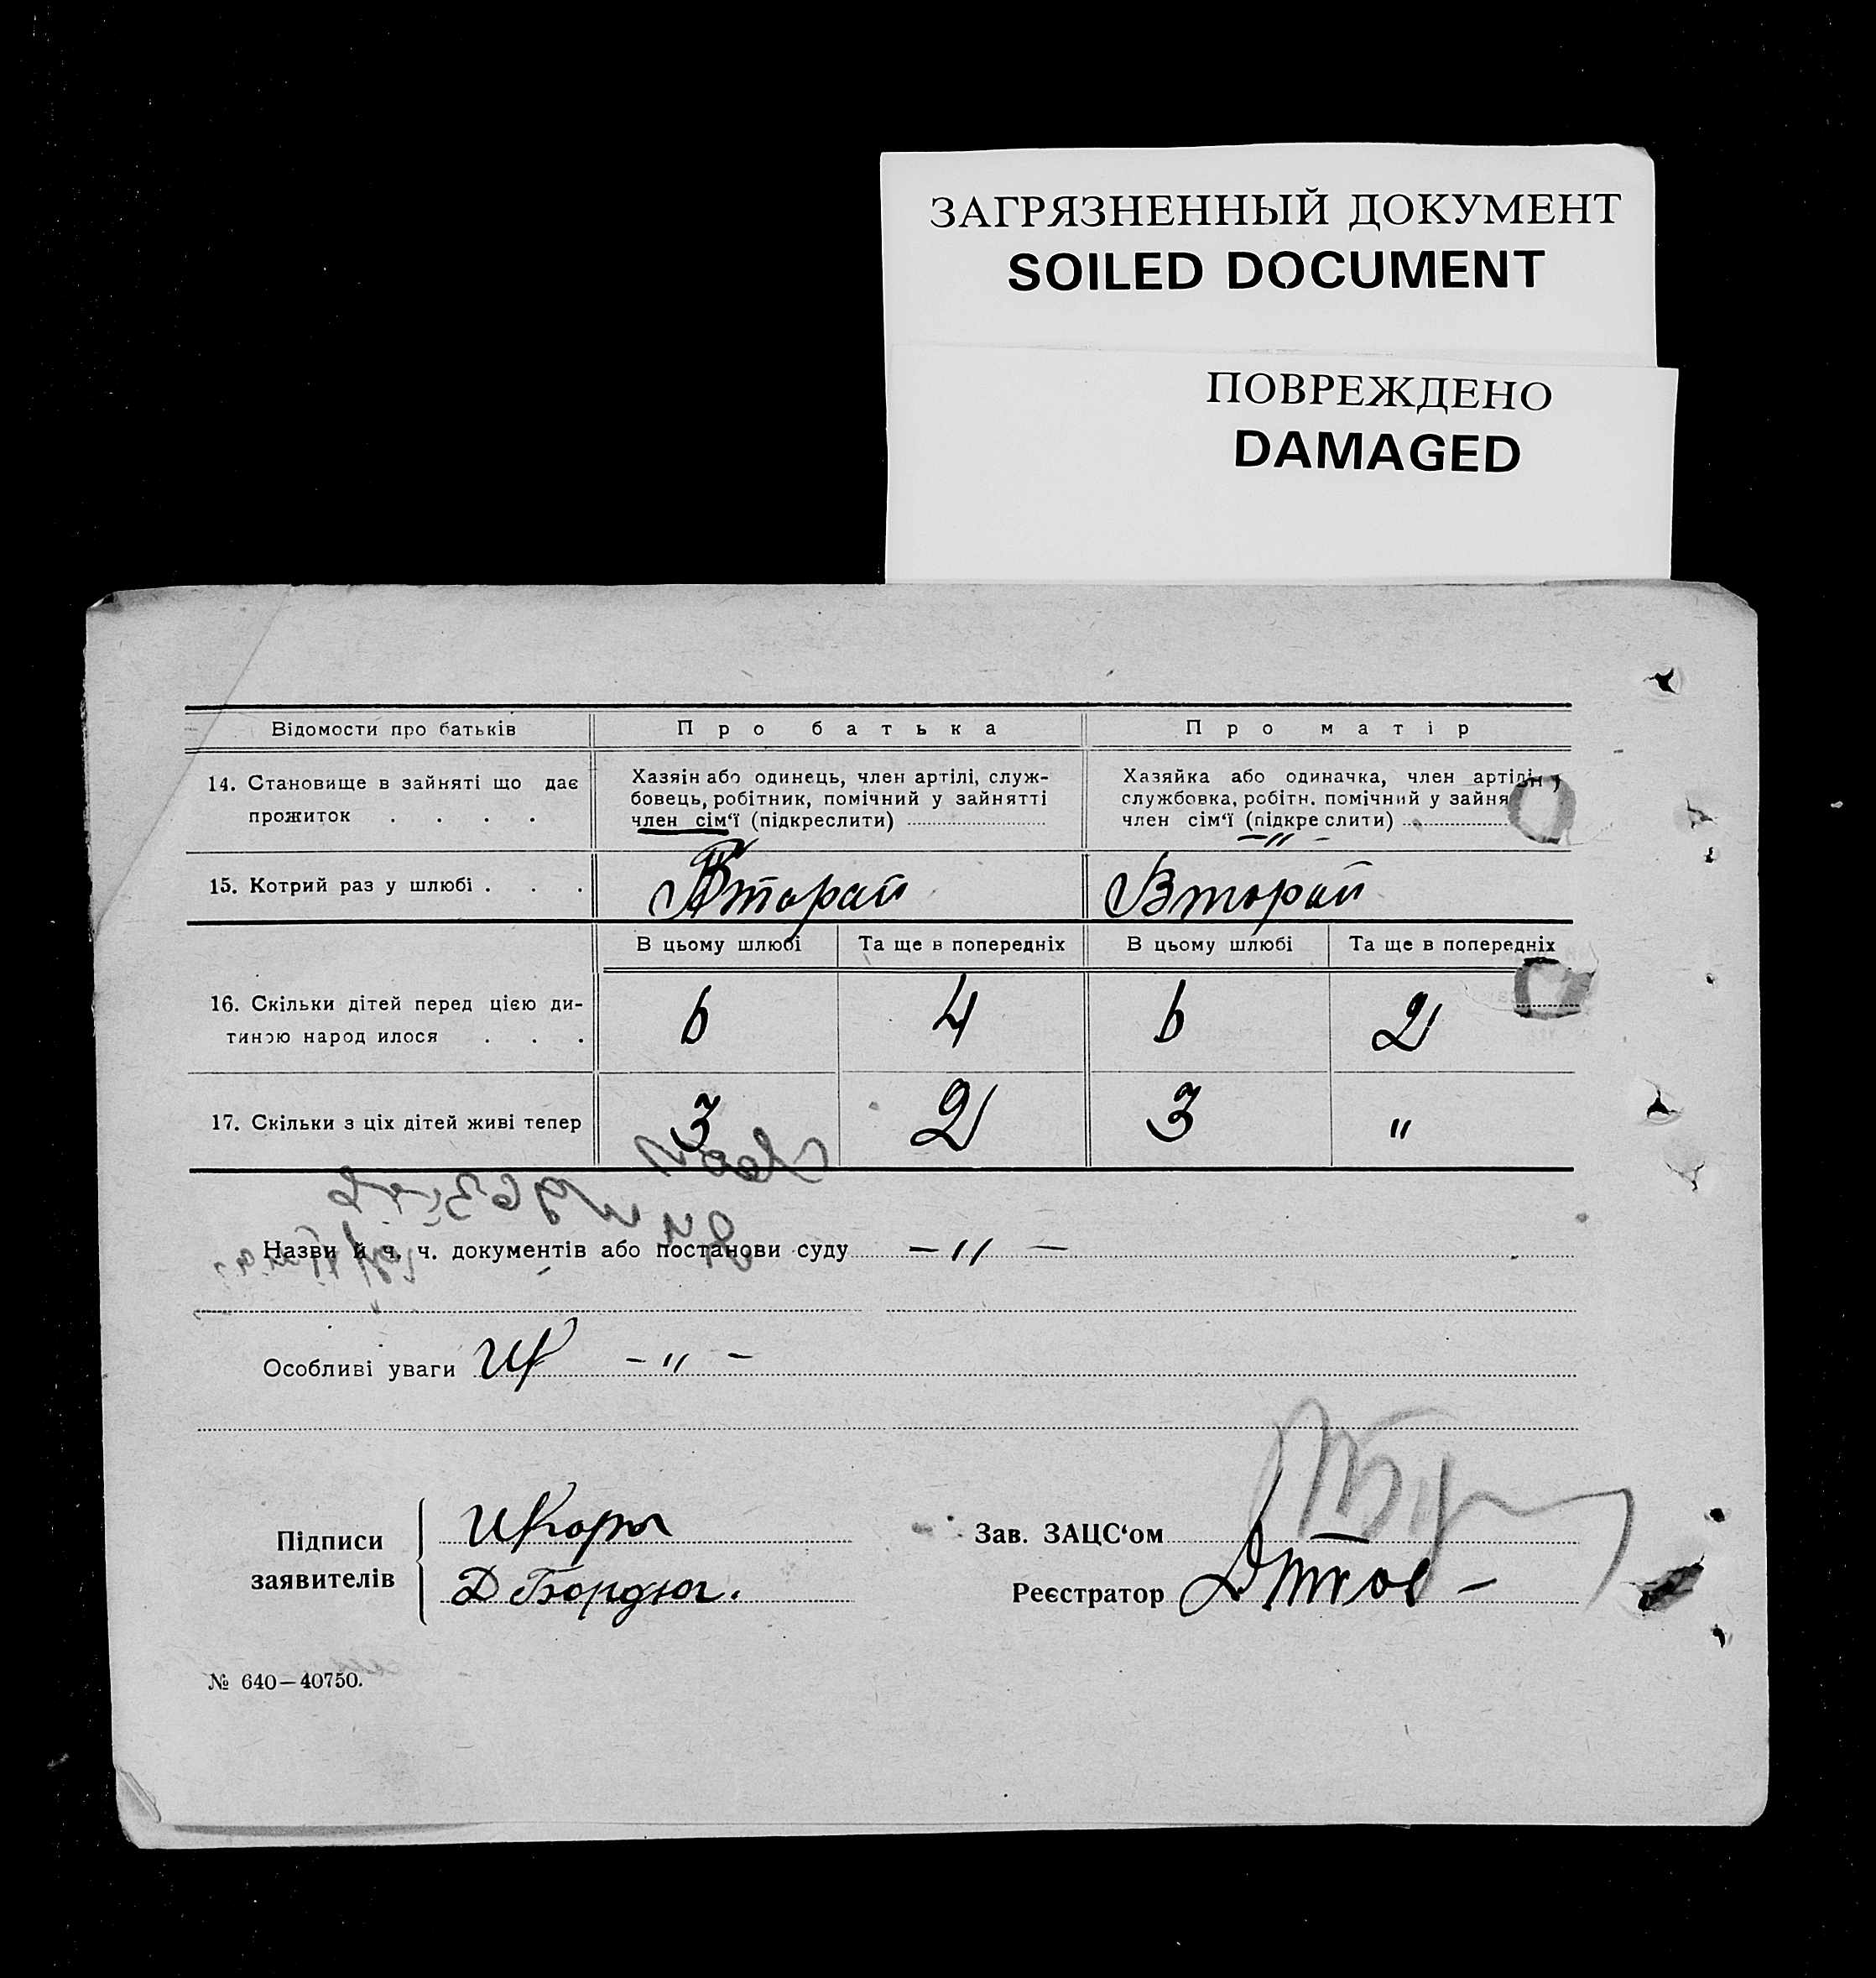 ЗАГРЯЗНЕННЫЙ ДОКУМЕНТ
SOILED DOCUMENT
ПОВРЕЖДЕНО
DAMAGED
Відомости про батьків Про батька Про матір
14. Становище в зайняті що дає прожиток . . . .
Хазяін або одинець, член артілі, служ-
бовець, робітник, помічний у зайнятті
член сім‘ї (підкреслити)
Хазяйка або одиначка, член артілі,
службовка, робітн. помічний у зайня
член сім‘ї (підкре слити)
–〃–
15. Котрий раз у шлюбі . . . Второй Второй
В цьому шлюбі Та ще в попередніх В цьому шлюбі Та ще в попередніх
16. Скільки дітей перед цією ди-
тиною народ илося . . . 6 4 6 2
17. Скільки з ціх дітей живі тепер 3 2 3 〃
Назви й ч. ч. документів або постанови суду –〃–
Особливі уваги –〃–
Підписи
заявителів
Д Бордюг.
Зав. ЗАЦС‘ом
Реєстратор
№ 640–40750.